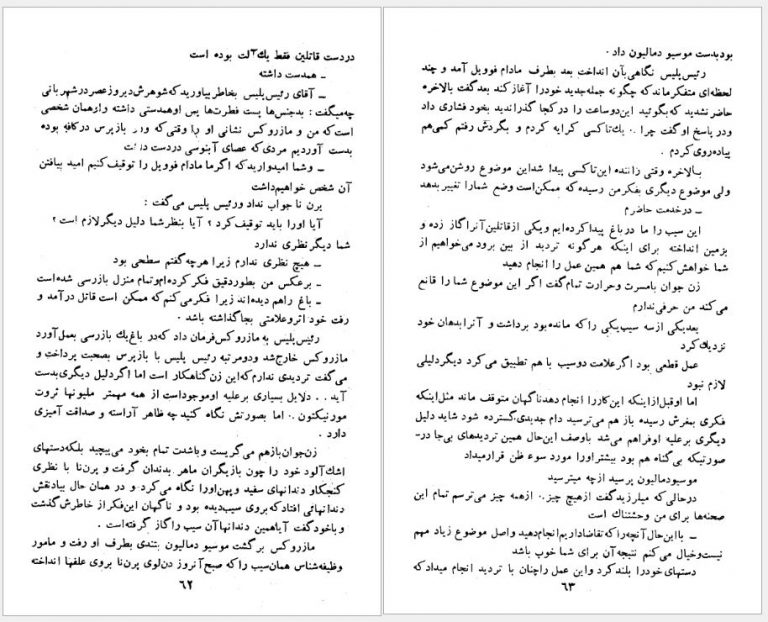 دردست قاتلین فقط یك آلت بوده است
ــ همدست داشته
ــ آقای رئیس پلیس بخاطر بیاورید که شوهرش دیروز عصر در شهربانی
چه میگفت : بدجنس‌ها پست فطرت‌ها پس او همدستی داشته واز همان شخصی
است که من و مازروکس نشانی او را وقتی که ودر بازپرس در کافه بوده
بدست آوردیم مردی که عصای آبنوسی دردست داشت
ــ وشما امیدوارید که اگر ما مادام فوویل را توقیف کنیم امید بیافتن
آن شخص خواهیم داشت
پرن نا جواب نداد ورئیس پلیس می‌گفت :
آیا اورا باید توقیف کرد ؟ آیا بنظر شما دلیل دیگر لازم است ؟
شما دیگر نظری ندارد
ــ هیچ نظری ندارم زیرا هرچه گفتم سطحی بود
ــ برعکس من بطور دقیق فکر کرده‌ام وتمام منزل بازرسی شده است
ــ باغ راهم دیده‌اند زیرا فکر می‌کنم که ممکن است قاتل درآمد و
رفت خود اثر وعلامتی بجا گذاشته باشد .
رئیس پلیس به مازروکس فرمان داد که در باغ یك بازرسی بعمل آورد
مازروکس خارج شد ودومرتبه رئیس پلیس با بازپرس بصحبت پرداخت و
می‌گفت تردیدی ندارم که این زن گناهکار است اما اگر دلیل دیگری بدست
آید . . دلایل بسیاری برعلیه او موجود است از همه مهمتر ملیونها ثروت
مورنیکتون . اما بصورتش نگاه کنید چه ظاهر آراسته و صداقت آمیزی
دارد .
زن جوان بازهم می‌گریست وباشدت تمام بخود می‌پیچید بلکه دستهای
اشك آلود خود را چون بازیگران ماهر بدندان گرفت و پرن نا با نظری
کنجکاو دندانهای سفید و پهن اورا نگاه می‌کرد و در همان حال بیادنقش
دندانهائی افتاد که بروی سیب دیده بود و ناگهان این فکر از خاطرش گذشت
و باخود گفت آیا همین دندانها آن سیب را گاز گرفته است .
مازروکس برگشت موسیو دمالیون بتندی بطرف او رفت و مامور
وظیفه‌شناس همان سیب را که صبح آنروز دن‌لوی پرن نا بروی علفها انداخته
۶۲
بود بدست موسیو دمالیون داد .
رئیس پلیس نگاهی بآن انداخت بعد بطرف مادام فوویل آمد و چند
لحظه‌ای متفکر ماند که چگونه جمله جدید خودرا آغاز کند بعد گفت بالاخره
حاضر نشدید که بگوئید این دوساعت را در کجا گذراندید بخود فشاری داد
ودر پاسخ او گفت چرا . یك تاکسی کرایه کردم و بگردش رفتم کمی‌هم
پیاده روی کردم .
بالاخره وقتی راننده این تاکسی پیدا شد این موضوع روشن می‌شود
ولی موضوع دیگری بفکر من رسیده که ممکن است وضع شمارا تغییر بدهد
ــ درخدمت حاضرم
این سیب را ما درباغ پیدا کرده‌ایم ویکی از قاتلین آنرا گاز زده و
بزمین انداخته برای اینکه هرگونه تردید از بین برود می‌خواهیم از
شما خواهش کنیم که شما هم همین عمل را انجام دهید
زن جوان بامسرت وحرارت تمام گفت اگر این موضوع شما را قانع
می‌کند من حرفی ندارم
بعد یکی از سه سیب یکی را که مانده بود برداشت و آنرا بدهان خود
نزدیك کرد
عمل قطعی بود اگر علامت دوسیب با هم تطبیق می‌کرد دیگر دلیلی
لازم نبود
اما او قبل از اینکه این کار را انجام دهد ناگهان متوقف ماند مثل اینکه
فکری بمغزش رسیده باز هم می‌ترسید دام جدیدی گسترده شود شاید دلیل
دیگری برعلیه او فراهم می‌شد باوصف این حال همین تردیدهای بی‌جا در-
صورتیکه بی گناه هم بود بیشتر اورا مورد سوء ظن قرار میداد
موسیو دمالیون پرسید از چه میترسید
در حالی که میلرزید گفت از هیچ چیز . از همه چیز می‌ترسم تمام این
صحنه‌ها برای من وحشتناك است
ــ با این حال آنچه را که تقاضا داریم انجام دهید واصل موضوع زیاد مهم
نیست وخیال می‌کنم نتیجه آن برای شما خوب باشد
دستهای خودرا بلند کرد واین عمل را چنان با تردید انجام میداد که
۶۳